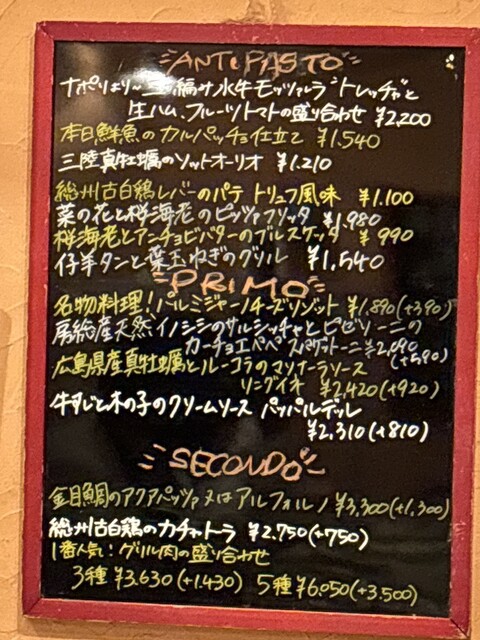 ANTIPASTO
ナポリより〜三つ編み水牛モッツァレラ"トレッチャ"と
生ハム、フルーツトマトの盛り合わせ ¥2,200
本日鮮魚のカルパッチョ仕立て ¥1,540
三陸真牡蠣のソットオーリオ ¥1,210
総州古白鶏レバーのパテ トリュフ風味 ¥1,100
菜の花と桜海老のゼッポリーニ ¥1,980
桜海老とアンチョビバターのブルスケッタ ¥990
仔羊タンと葉玉ねぎのグリル ¥1,540
PRIMO
名物料理!パルミジャーノチーズリゾット ¥1,890(+390)
房総産天然イノシシのサルシッチャとピゼリーニの
カーチョエペペ スパゲットーニ ¥2,090
(+590)
広島県産真牡蠣とルーコラのマリナーラソース
リングイネ ¥2,420(+920)
牛すじと木の子のクリームソース パッパルデッレ
¥2,310(+810)
SECONDO
金目鯛のアクアパッツァ又はアルフォルノ ¥3,300(+1,300)
総州古白鶏のカチャトーラ ¥2,750(+750)
1番人気!グリル肉の盛り合わせ
3種 ¥3,630(+1,430) 5種 ¥6,050(+3,500)